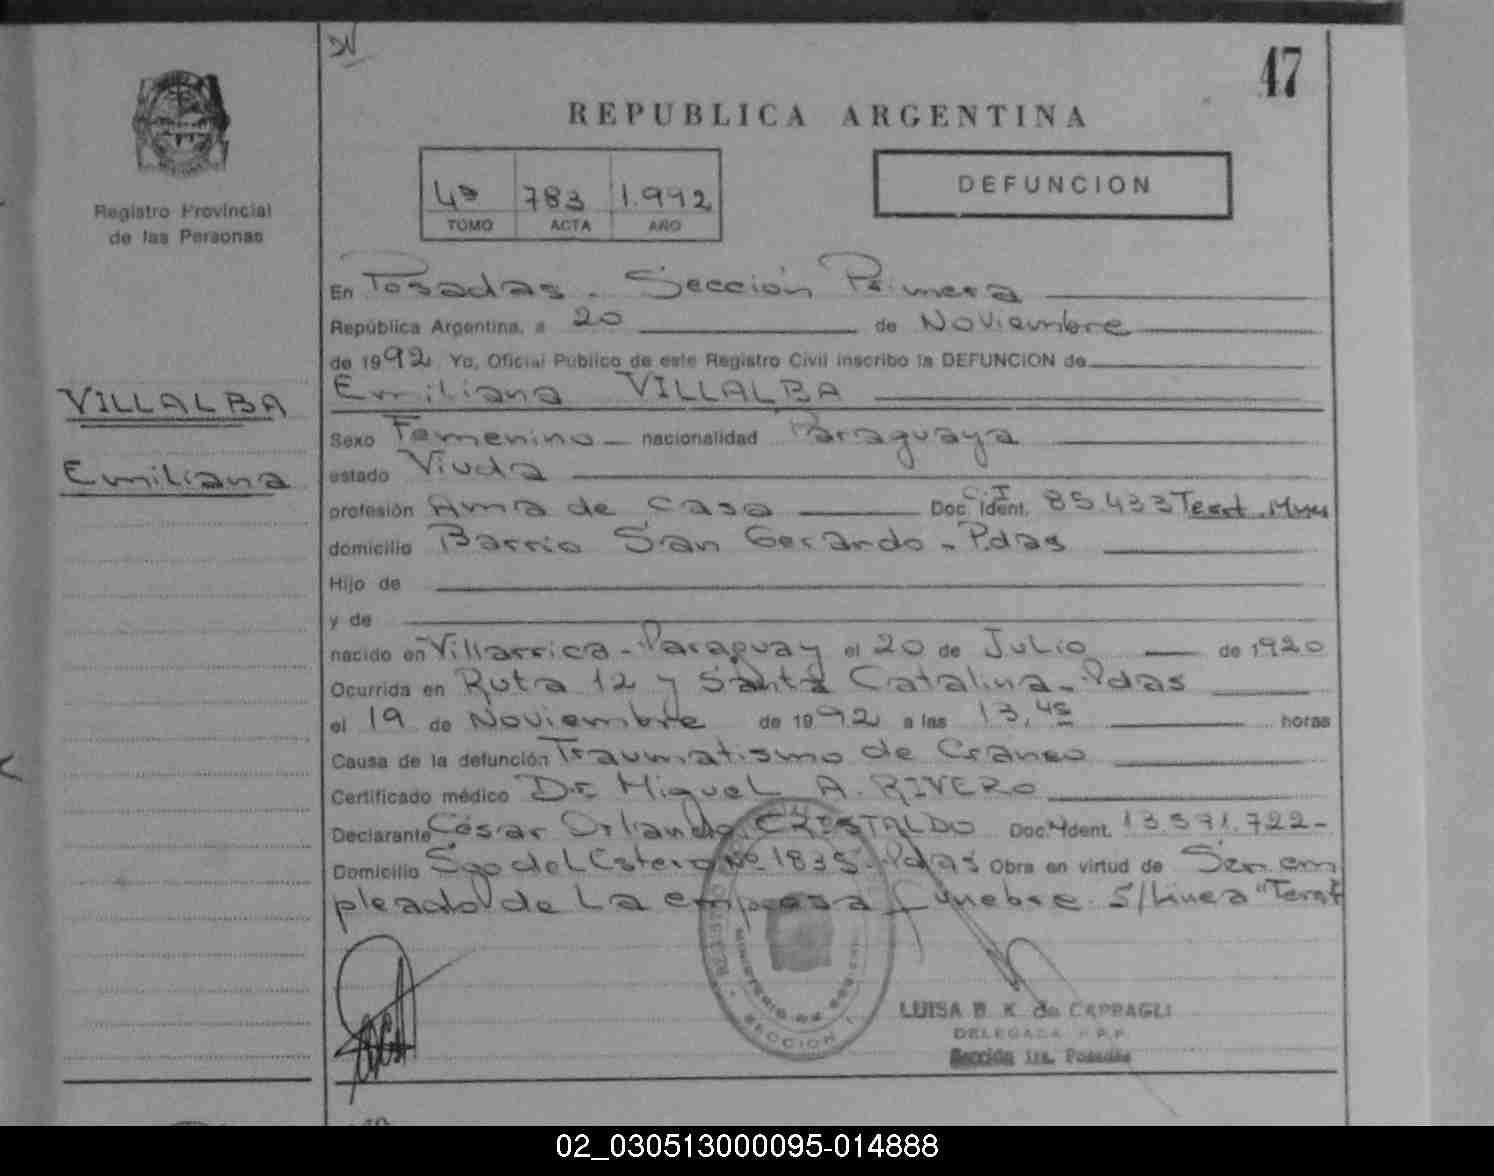 47
REPUBLICA ARGENTINA
Registro Provincial
de las Personas
4º 783 1.992
TOMO ACTA AÑO
DEFUNCION
En Posadas - Sección Primera
República Argentina, a 20 de Noviembre
de 1992 Yo, Oficial Público de este Registro Civil inscribo la DEFUNCION de
VILLALBA
Emiliana
Emiliana VILLALBA
Sexo Femenino - nacionalidad Paraguaya
estado Viuda
profesión Ama de Casa Doc. C.I. Ident. 85.433
domicilio Barrio San Gerardo - Pdas
Hijo de
y de
nacido en Villarrica - Paraguay el 20 de Julio de 1920
Ocurrida en Ruta 12 y Santa Catalina - Pdas
el 19 de Noviembre de 1992 a las 13,45 horas
Causa de la defunción Traumatismo de Craneo
Certificado médico Dr. Miguel A. RIVERO
Declarante César Orlando CRISTALDO Doc. Ident. 13.571.722-
Domicilio Sgo del Estero Nº 1835 - Pdas Obra en virtud de Ser em
pleado de La empresa funebre. S/Linea
LUISA B. K. de
DELEGADA
Sección 1ra. Posadas
SECCION 1
02_030513000095-014888